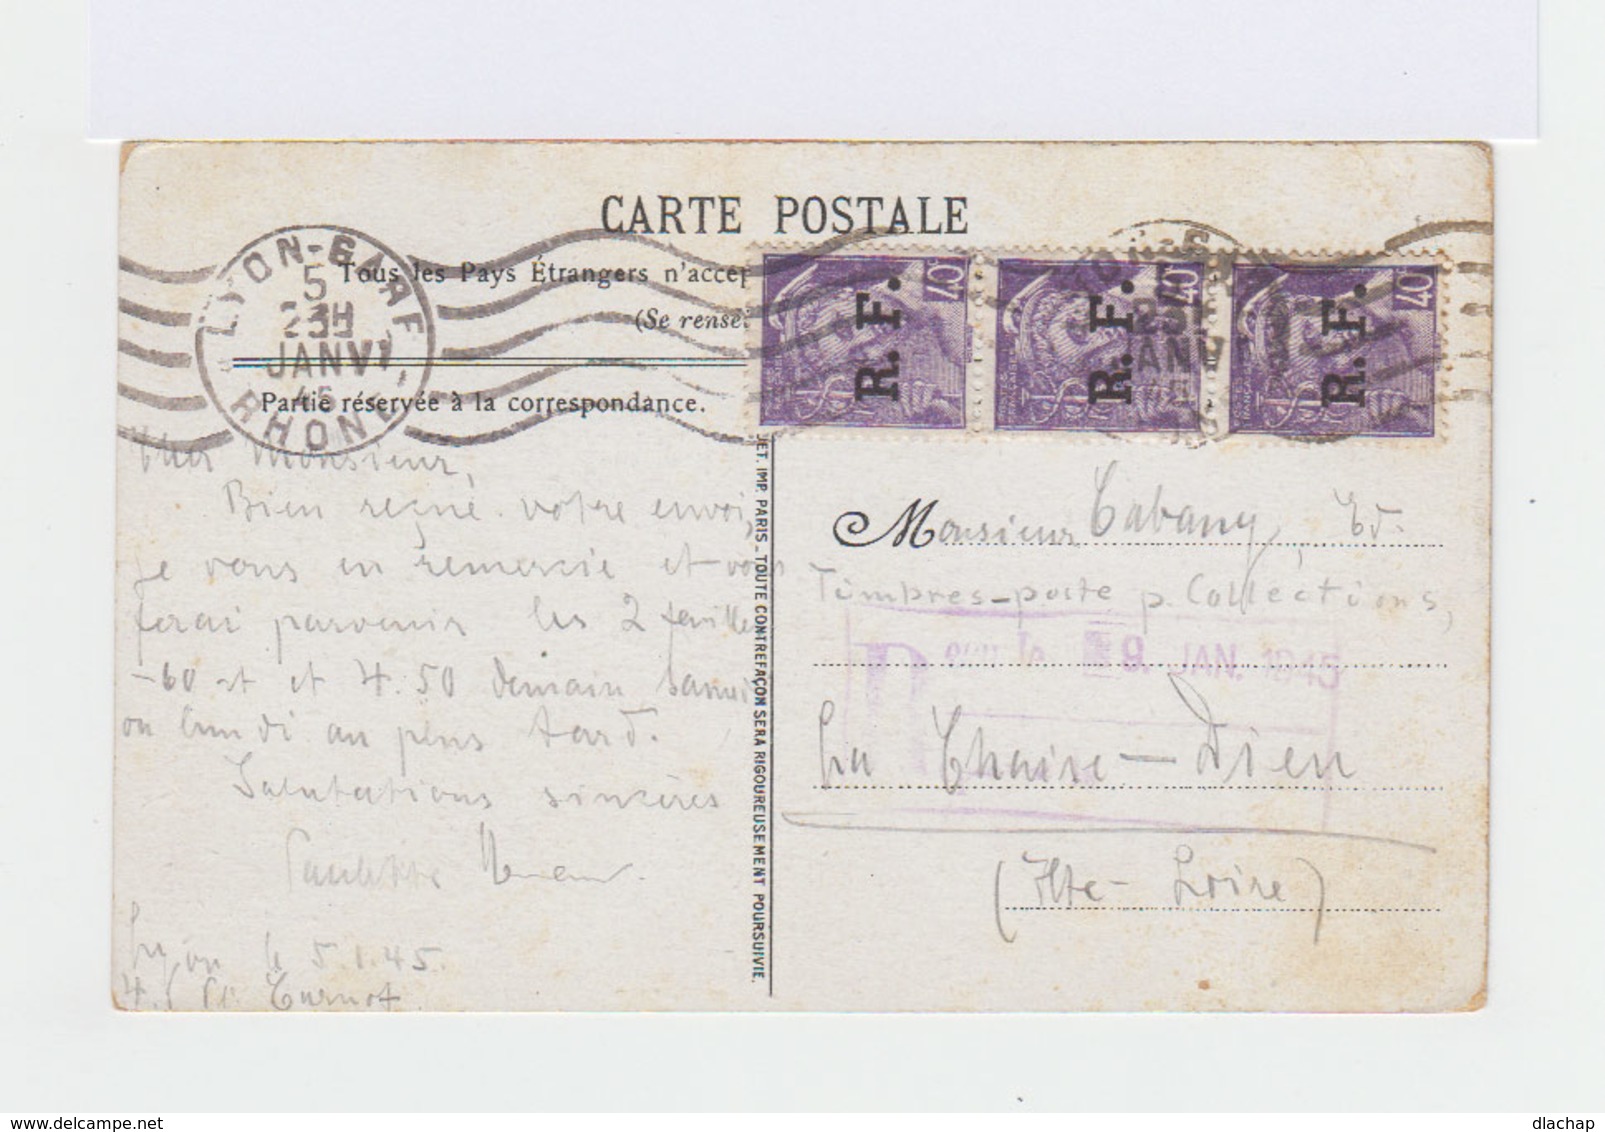 CARTE POSTALE
Tous les Pays Étrangers n'accep
(Se rensei
Partie réservée à la correspondance.
LYON-GARE
5
23H
JANVI
45
RHONE
40c
R. F.
40c
R. F.
40c
R. F.
Monsieur,
Bien reçue votre envoi,
je vous en remercie et vous
ferai parvenir les 2 feuilles
-60 et et 4.50 demain samedi
ou lundi au plus tard.
Salutations sincères
Lyon le 5.1.45.
Carnot
JET. IMP. PARIS _ TOUTE CONTREFAÇON SERA RIGOUREUSEMENT POURSUIVIE.
Monsieur Cabany, Ed.
Timbres-poste p. Collections,
R eçu le 9. JAN. 1945
La Chaise-Dieu
(Hte-Loire)
delcampe.net
dlachap